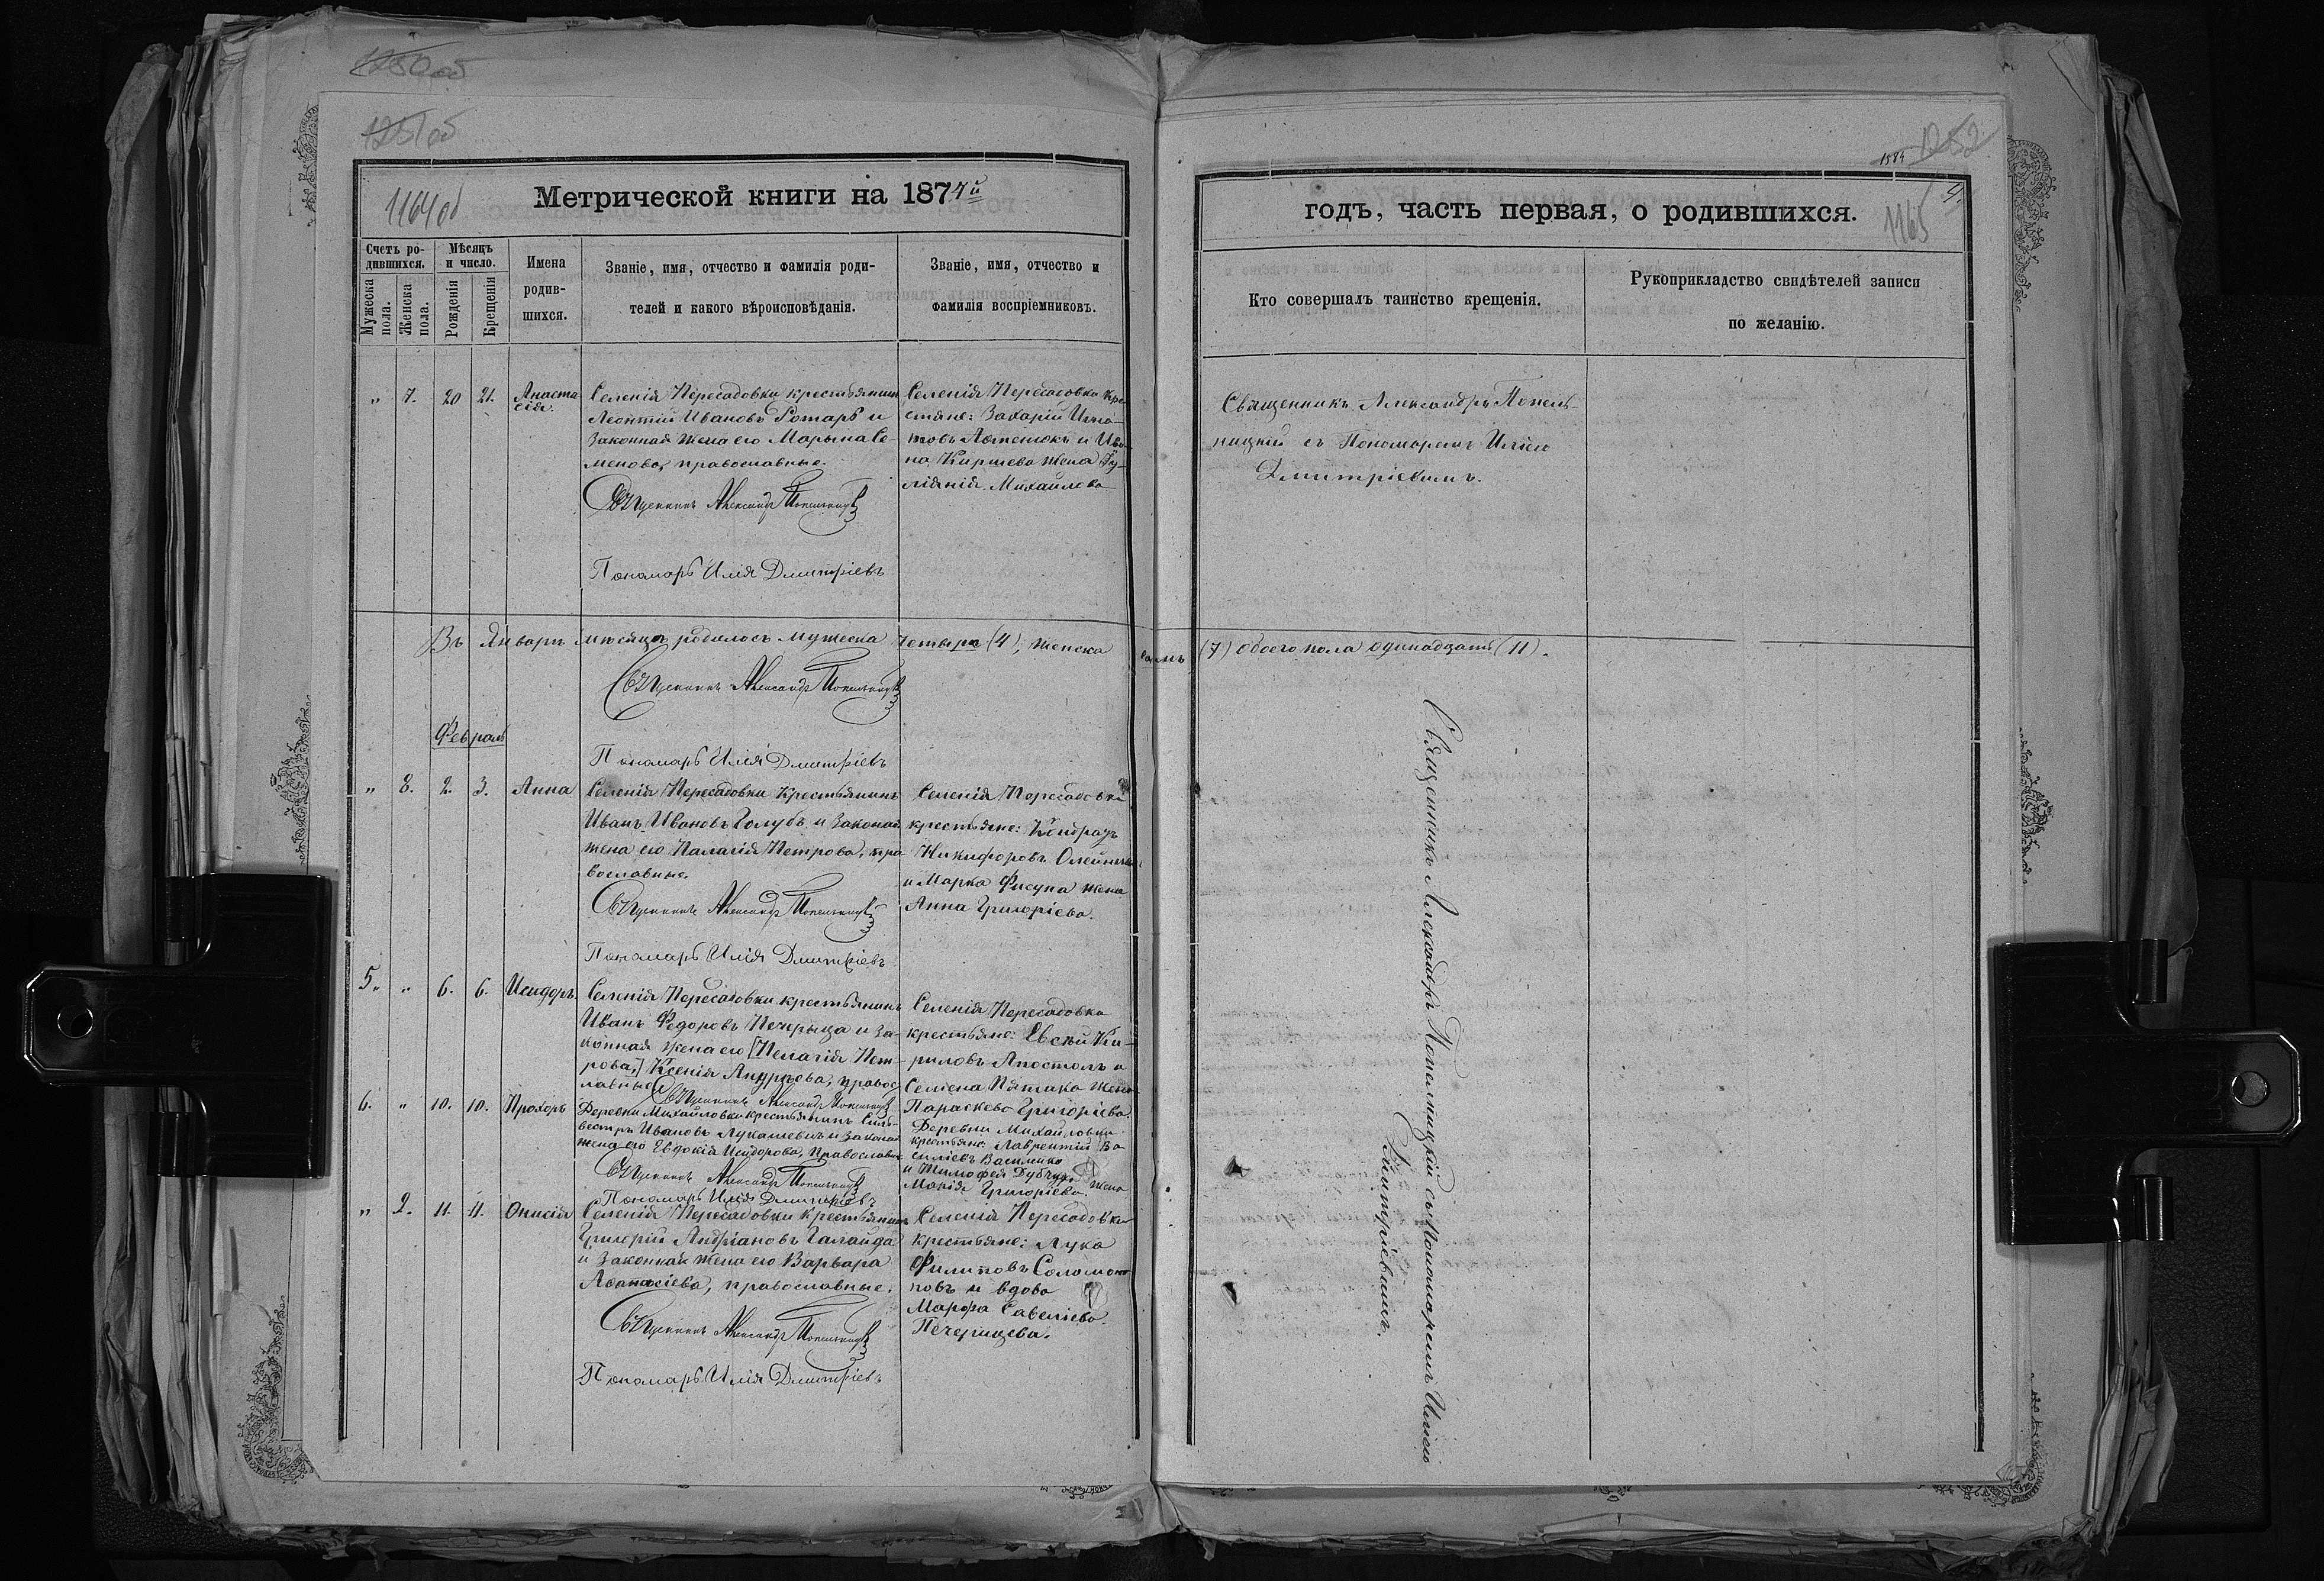 1250 об
1251 об
1164 об
Метрической книги на 1874й
Счетъ ро-
дившихся.
Мужеска
пола.
Женска
пола.
Мѣсяцъ
и число.
Рожденія
Крещенія
Имена
родив-
шихся.
Званіе, имя, отчество и фамилія роди-
телей и какого вѣроисповѣданія.
Званіе, имя, отчество и
фамилія воспріемниковъ.
„ 7. 20 21. Анаста
сія.
Селенія Пересадовки крестьянинъ
Леонтій Ивановъ Ротарь и
законная жена его Марьина Се-
менова, православные.
Священникъ Александръ Попельницкій
Пономарь Илія Дмитріевъ
Селенія Пересадовка кре
стяне: Захарій Игна-
товъ и Ива
на жена Іу-
ліянія Михайлова
Въ Январѣ мѣсяцѣ родилось мужеска четыре (4), женска семь (7) обоего пола одинадцать (11).
Священникъ Александръ Попельницкій
Февраль
Пономарь Илія Дмитріевъ
„ 8. 2. 3. Анна
Селенія Пересадовки Крестьянинъ
Иванъ Ивановъ Голубъ и законая
жена его Палагія Петрова, пра-
вославные.
Священникъ Александръ Попельницкій
Пономарь Илія Дмитріевъ
Селенія Пересадовки
крестьяне: Кондратъ
Никифоровъ Олейникъ
и Марка Фисуна жена
Анна Григоріева.
5. „ 6. 6. Исидоръ
Селенія Пересадовки крестьянинъ
Иванъ Федоровъ Печерица и за-
конная жена его [Пелагія Пет-
рова,] Ксенія Андрѣева, правос
лавные
Священникъ Александръ Попельницкій
Селенія Пересадовка
крестьяне: Евсѣй Ки-
риловъ Апостолъ и
Семена Пятака жена
Параскева Григоріева.
6. „ 10. 10. Прохоръ
Деревни Михайловки крестьянинъ Силь-
вестръ Ивановъ Лукашевичъ и законая
жена его Евдокія Исидорова, православные
Священникъ Александръ Попельницкій
Пономарь Илія Дмитріевъ
Деревни Михайловки
крестьяне: Лаврентій Ва
силіевъ Василенко
и Тимофея жена
Марія Григоріева.
„ 2. 11. 11. Онисія
Селенія Пересадовки крестьянинъ
Григорій Андріановъ Галайда
и законная жена его Варвара
Афанасіева, православные.
Священникъ Александръ Попельницкій
Пономарь Илія Дмитріевъ
Селенія Пересадовки
крестьяне: Лука
Филиповъ Соломоно
повъ и вдова
Марфа Савеліева
Печерицева.
1584
1252
4.
1165
годъ, часть первая, о родившихся.
Кто совершалъ таинство крещенія.
Рукоприкладство свидѣтелей записи
по желанію.
Священникъ Александръ Попель-
ницкій съ Пономаремъ Иліею
Дмитріевымъ.
Священникъ Александръ Попельницкій съ Пономаремъ Иліею
Дмитріевымъ.